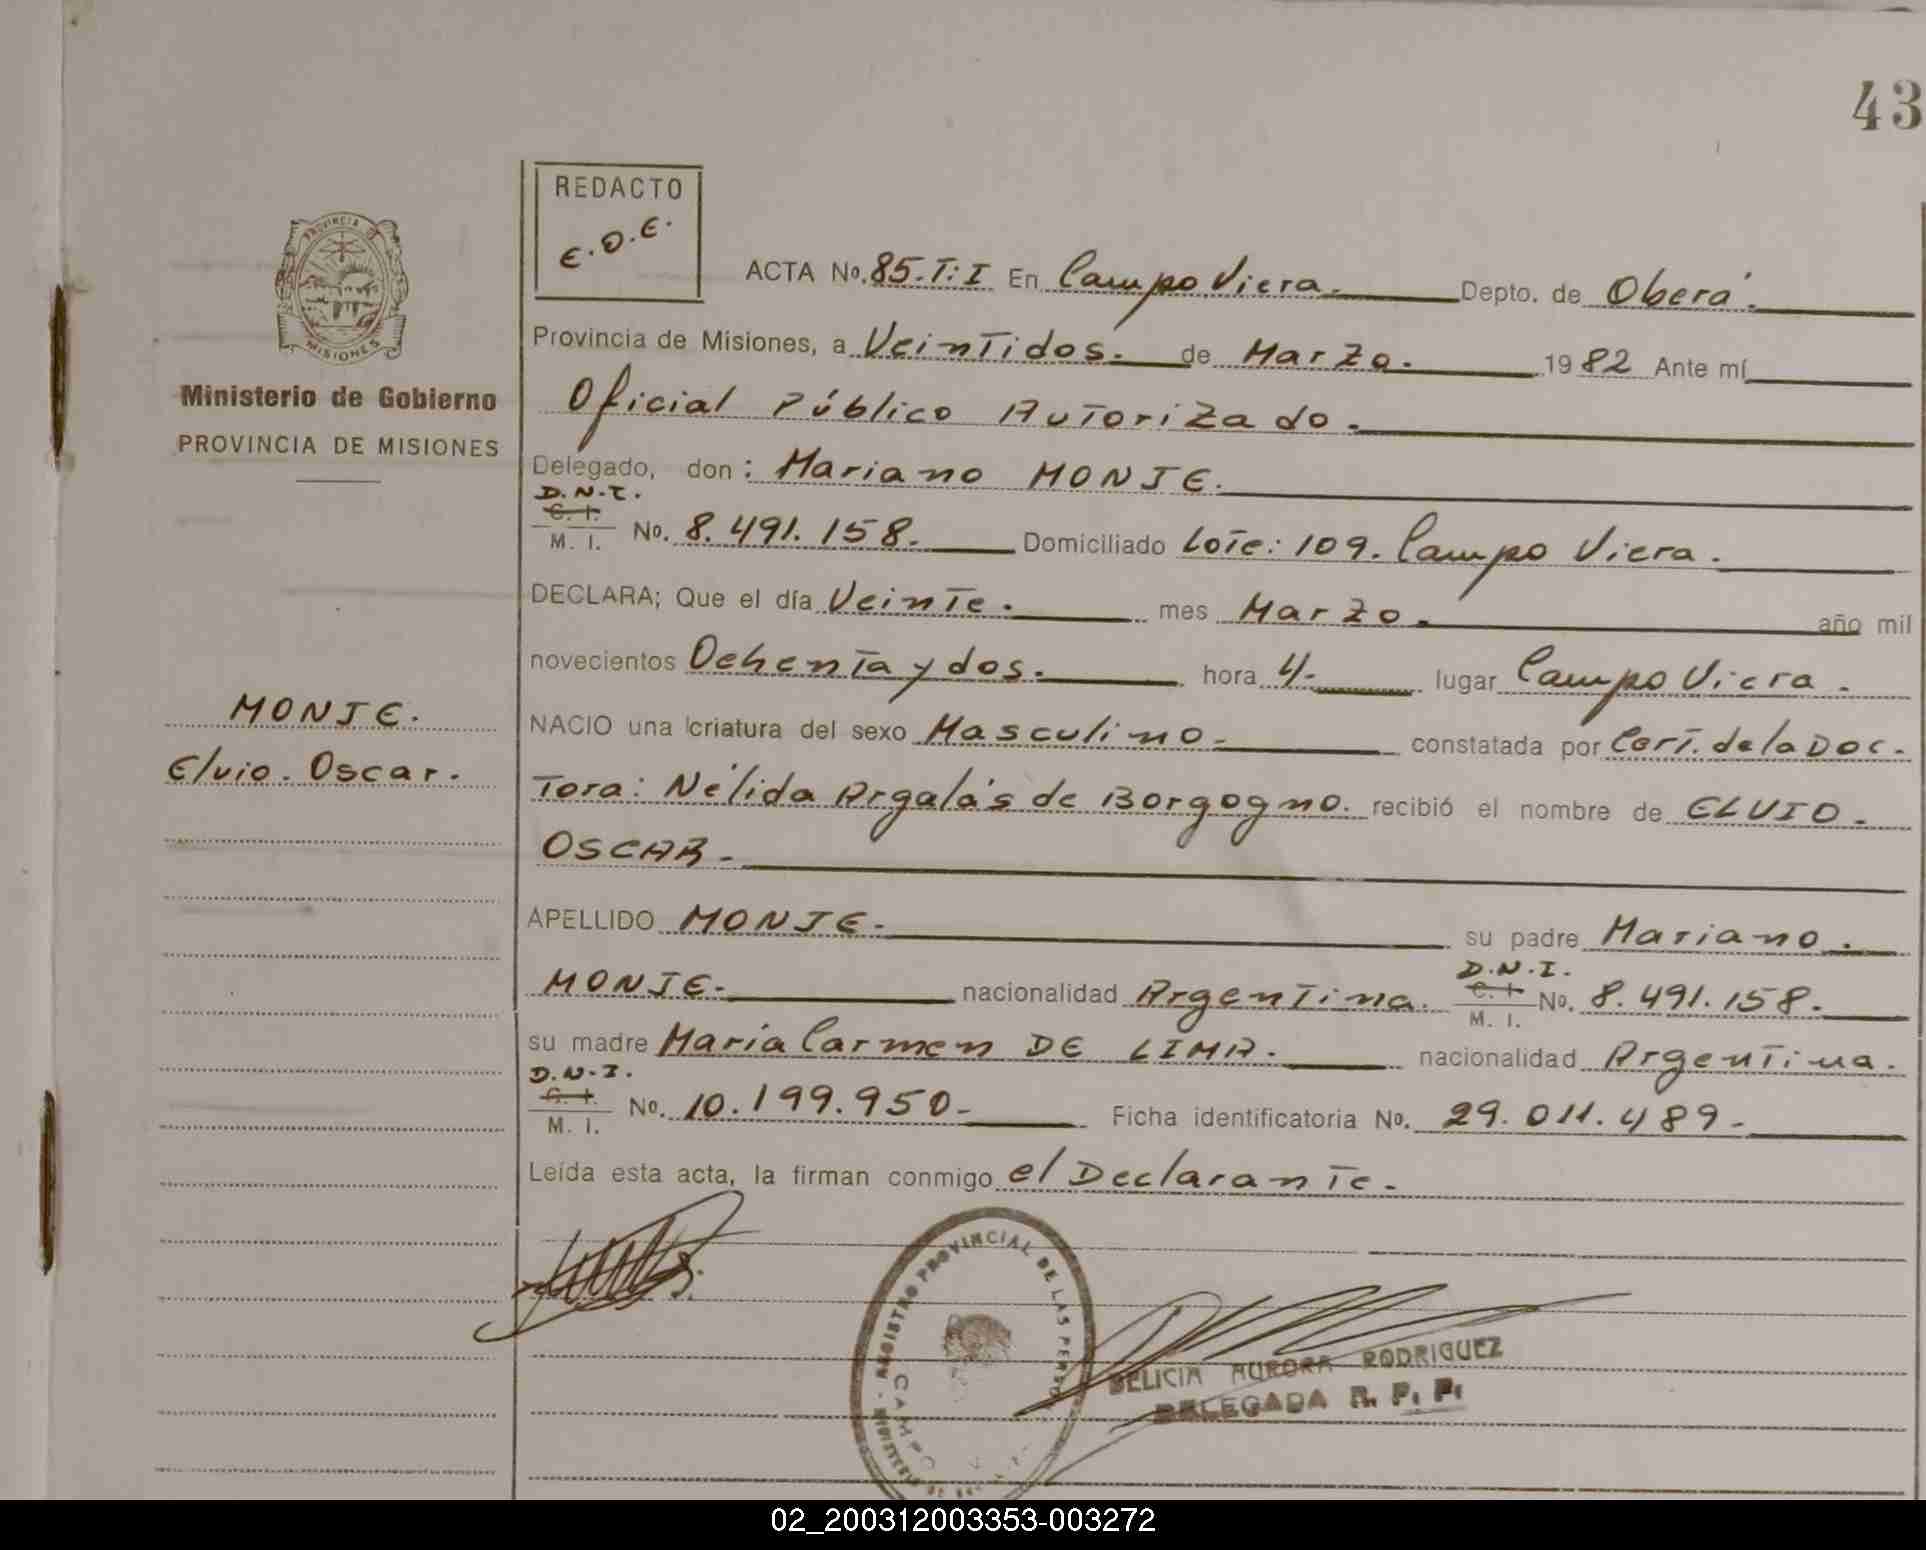 43
REDACTO
E.O.E.
PROVINCIA DE
MISIONES
Ministerio de Gobierno
PROVINCIA DE MISIONES
MONJE.
Elvio. Oscar.
ACTA No. 85.T:I En Campo Viera. Depto. de Oberá.
Provincia de Misiones, a Veintidos. de Marzo. 1982 Ante mí
Oficial Público Autorizado.
Delegado, don: Mariano MONJE.
D.N.I.
C. I.
M. I. No. 8.491.158. Domiciliado Lote: 109. Campo Viera.
DECLARA; Que el día Veinte. mes Marzo. año mil
novecientos Ochenta y dos. hora 4. lugar Campo Viera.
NACIO una criatura del sexo Masculino. constatada por Cert. de la Doc.
Tora: Nélida Argalás de Borgogno. recibió el nombre de ELVIO.
OSCAR.
APELLIDO MONJE. su padre Mariano.
D.N.I.
MONJE. nacionalidad Argentina. C. I. No. 8.491.158.
M. I.
su madre María Carmen DE LIMA. nacionalidad Argentina.
D.N.I.
C. I.
M. I. No. 10.199.950- Ficha identificatoria No. 29.011.489-
Leída esta acta, la firman conmigo el Declarante.
REGISTRO PROVINCIAL DE LAS PERSO
CAMPO
DELICIA AURORA RODRIGUEZ
DELEGADA R. P. P.
02_200312003353-003272